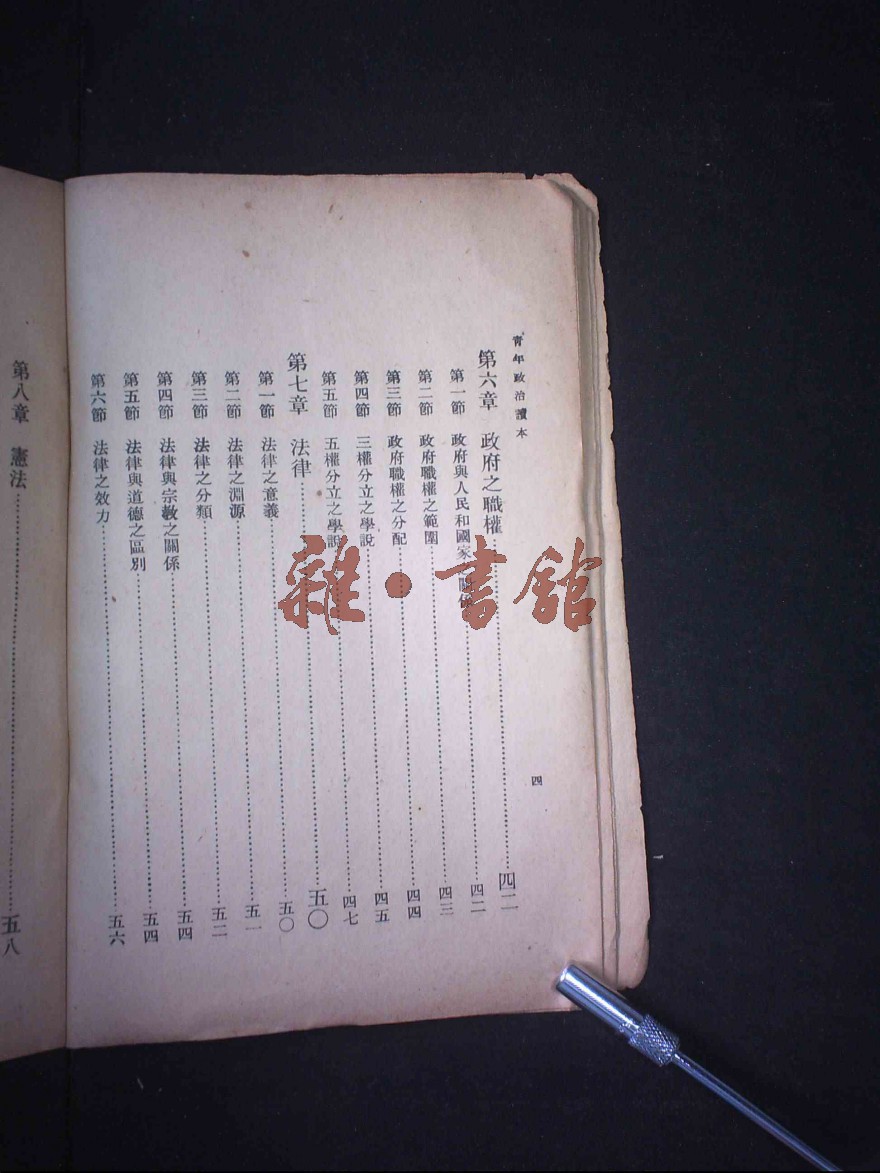 青年政治讀本
四
第六章 政府之職權 四二
第一節 政府與人民和國家 關係 四二
第二節 政府職權之範圍 四三
第三節 政府職權之分配 四四
第四節 三權分立之學說 四五
第五節 五權分立之學說 四七
第七章 法律 五〇
第一節 法律之意義 五〇
第二節 法律之淵源 五一
第三節 法律之分類 五二
第四節 法律與宗教之關係 五四
第五節 法律與道德之區別 五四
第六節 法律之效力 五六
第八章 憲法 五八
雜·書館